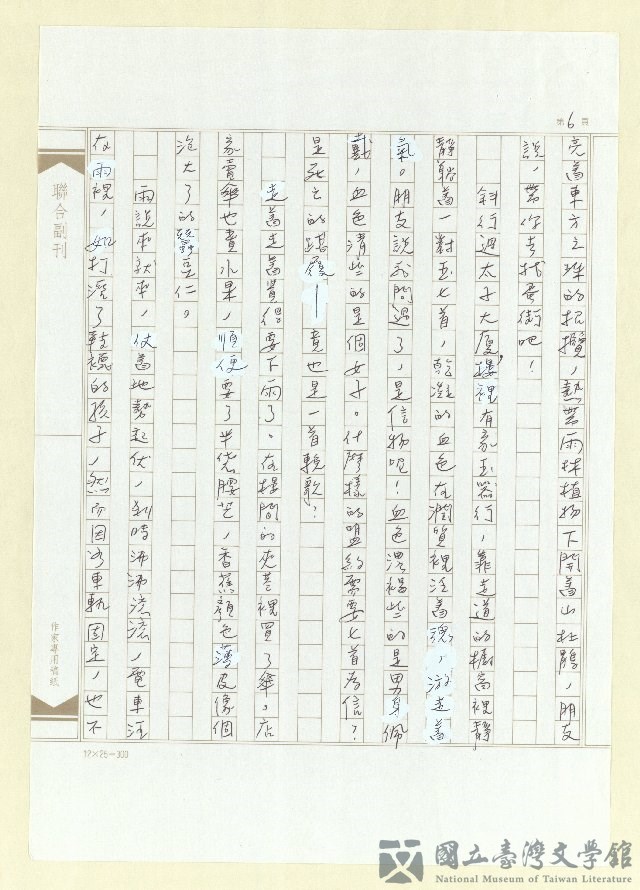 第6頁
亮著東方之珠的招攬，熱帶雨林植物下開著山杜鵑，朋友
說，帶你去找蛋街吧！
斜行過太子大廈，樓裡有家玉器行，靠走道的櫥窗裡靜
靜躺著一對玉匕首，乾涸的血色在潤質裡泛著魂，游走著
氣。朋友說我問過了，是信物呢！血色濃褐些的是男身佩
戴，血色清些的是個女子。什麼樣的盟約需要匕首為信？
是死亡的踐履—竟也是一首輓歌？
走著走著覺得要下雨了。在樓間的夾巷裡買了傘。店
家賣傘也賣水果，順便要了半佬腰芒，香蕉顏色薄皮像個
泡大了的蠶豆仁。
雨說來就來，仗著地勢起伏，剎時沛沛流流，電車汪
在雨裡，如打溼了鞋襪的孩子，然而因為車軌固定，也不
聯合副刊
作家專用稿紙
12×25=300
國立臺灣文學館
National Museum of Taiwan Literature